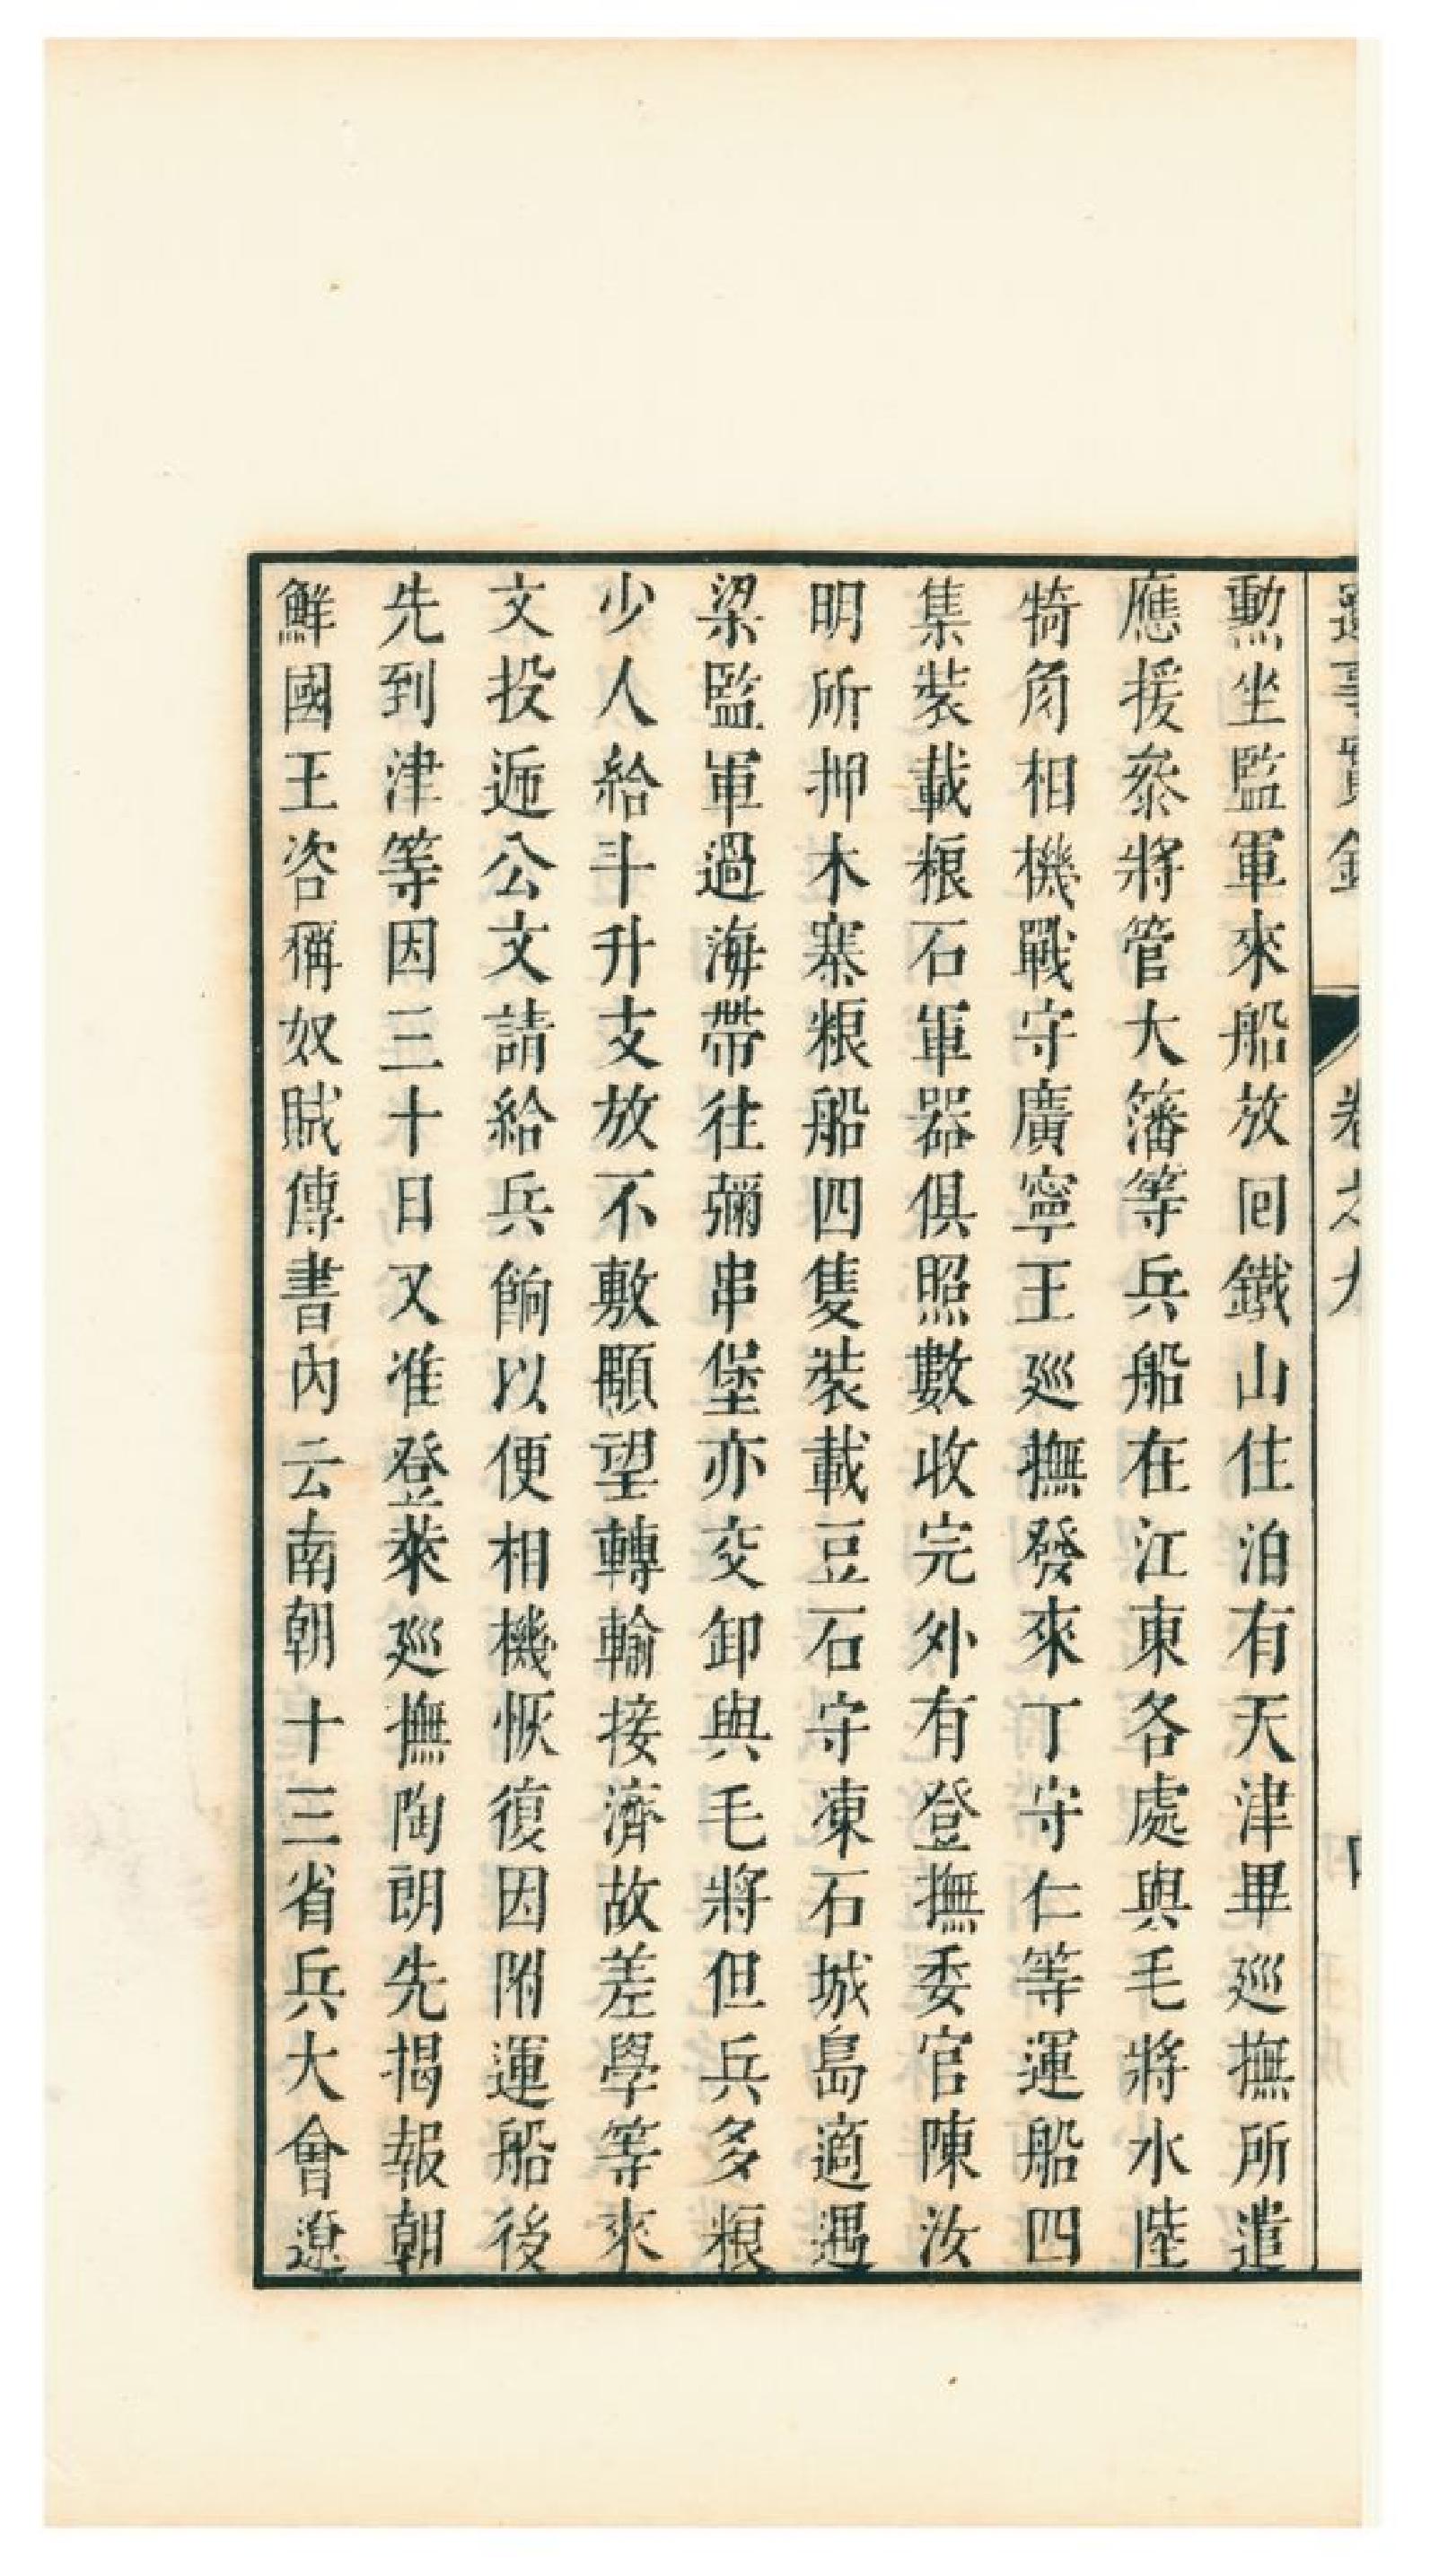 勲坐監軍來船放回鐵山住泊有天津畢廵撫所遣
應援叅將管大籓等兵船在江東各處與毛將水陸
犄角相機戰守廣寧王廵撫發來丁守仁等運船四
集裝載粮石軍器俱照數收完外有登撫委官陳汝
明所押木寨粮船四隻裝載豆石守凍石城島適遇
梁監軍過海帶徃彌串堡亦交卸與毛將但兵多粮
少人給斗升支放不敷顒望轉輸接濟故差學等來
文投遞公文請給兵餉以便相機恢復因附運船後
先到津等因三十日又准登萊廵撫陶朗先揭報朝
鮮國王咨稱奴賊傳書內云南朝十三省兵大會遼